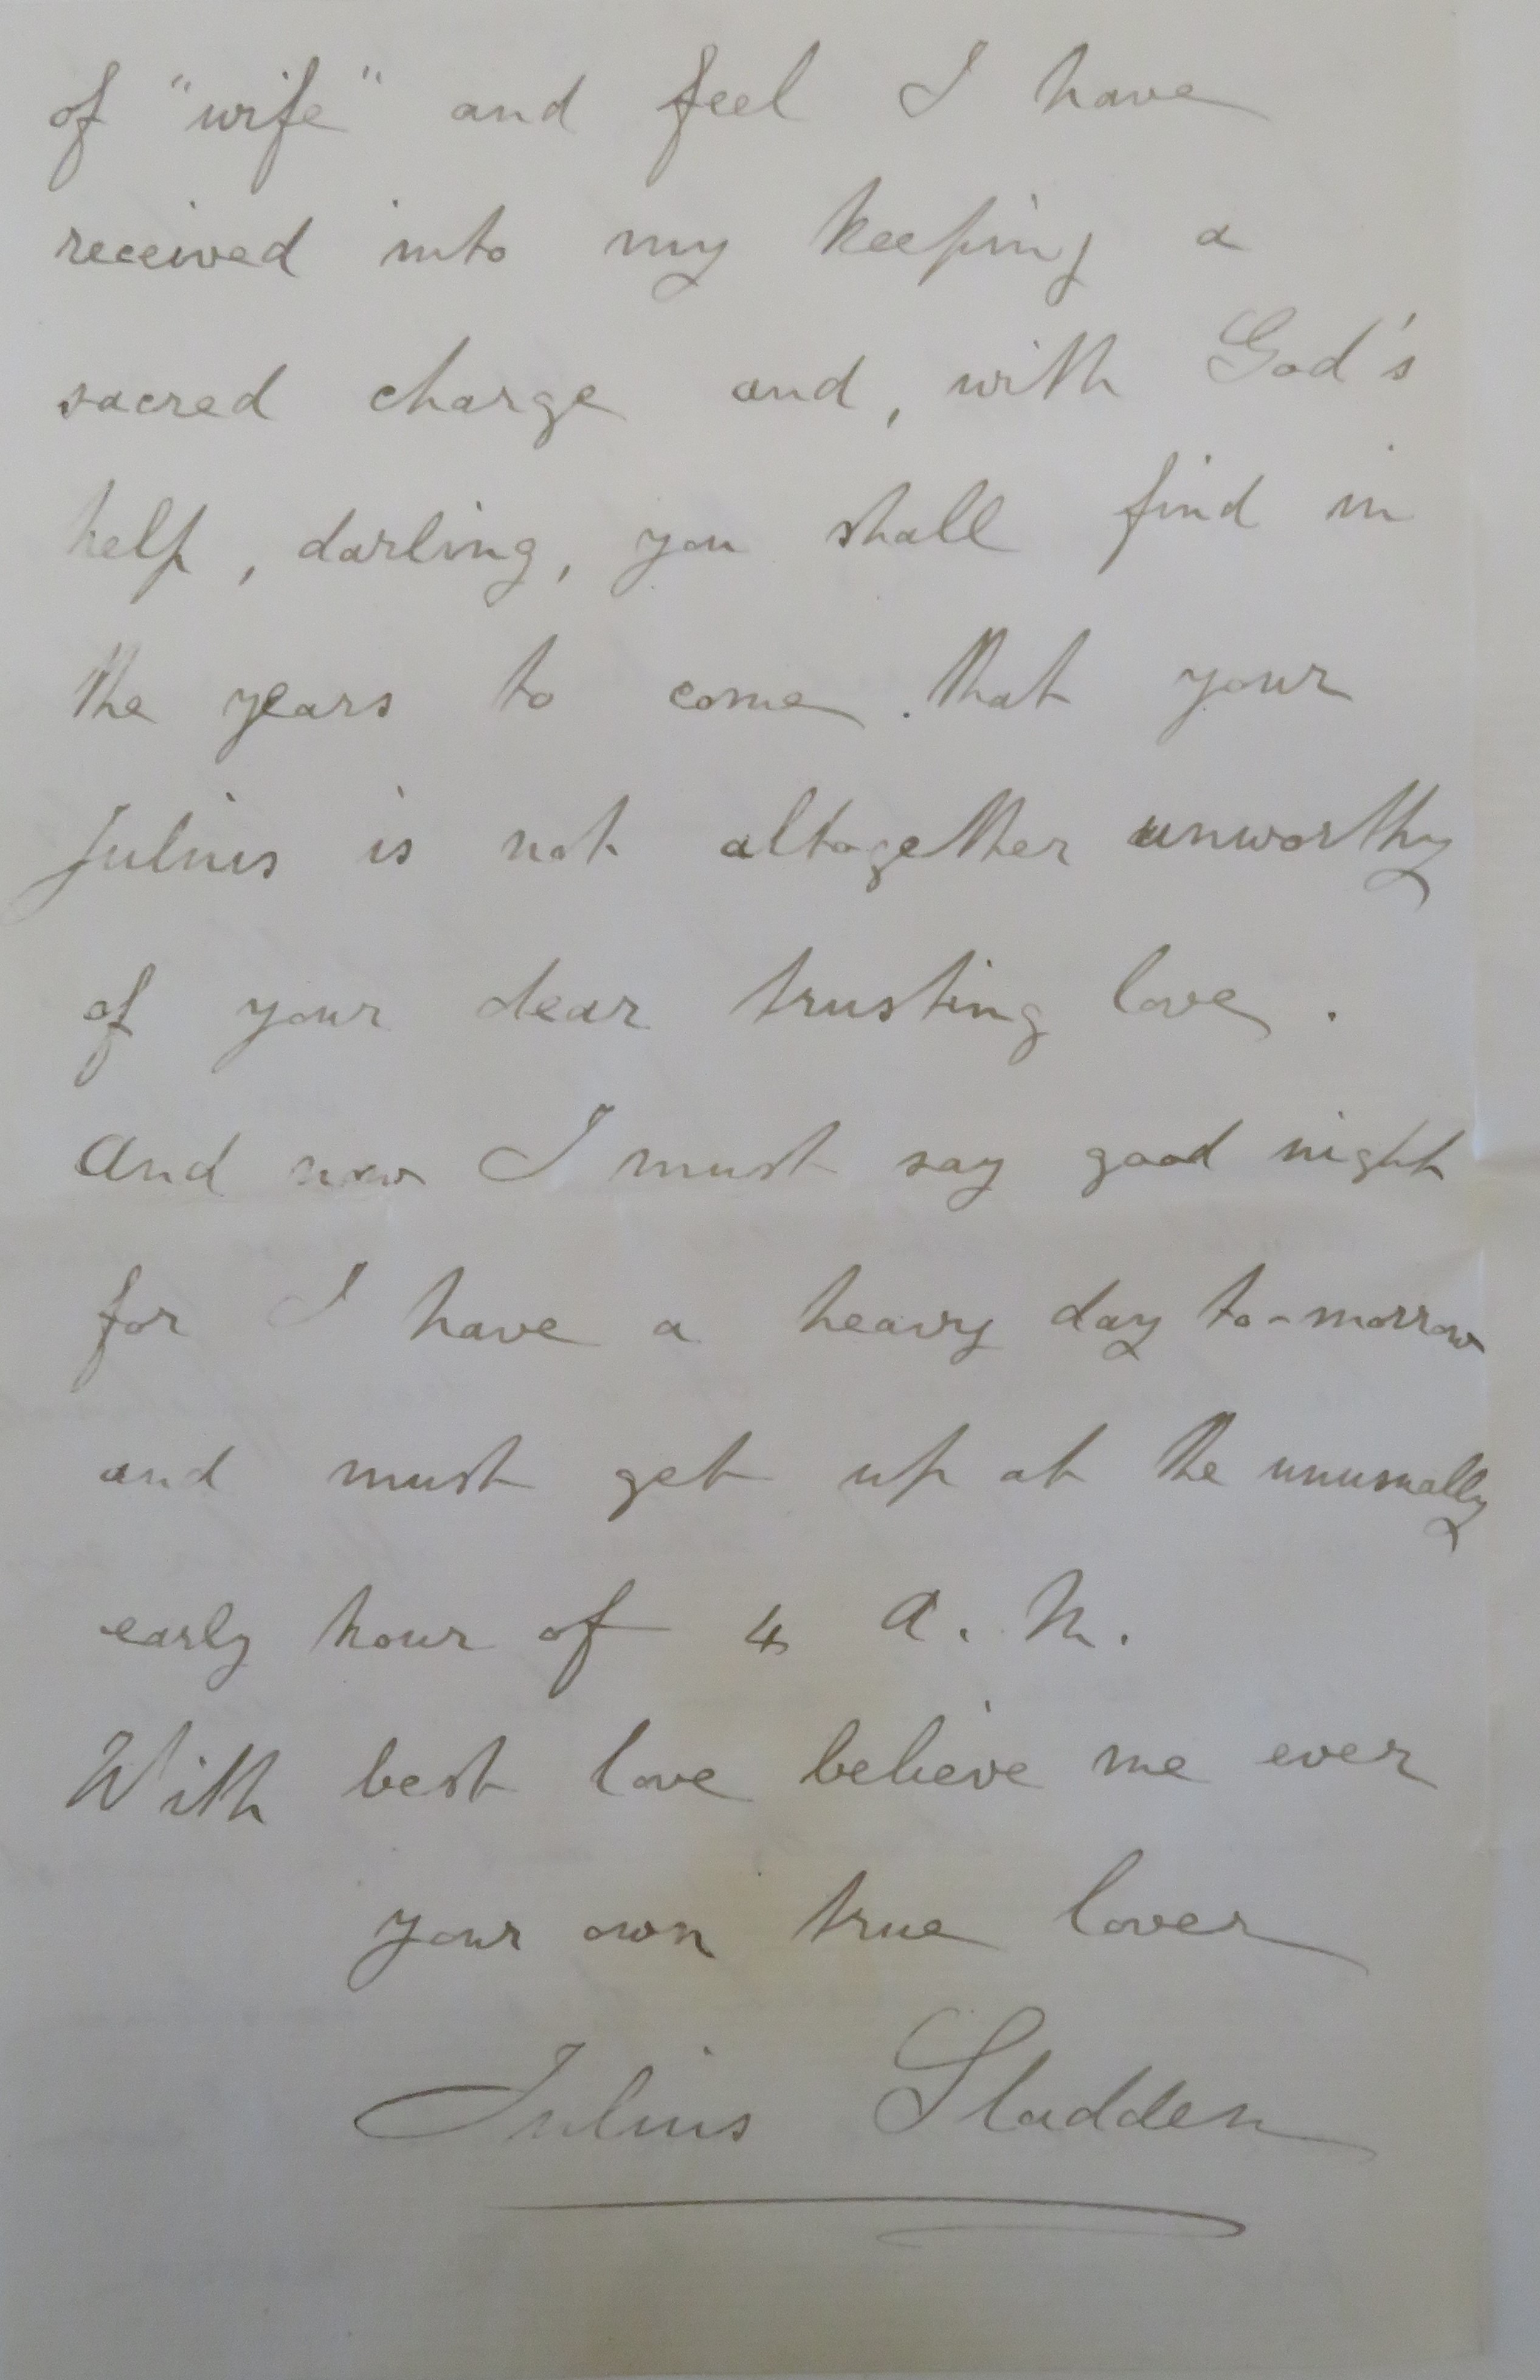 of "wife" and feel I have
received into my keeping a
sacred charge and, with God's
help, darling, you shall find in
the years to come that your
Julius is not altogether unworthy
of your dear trusting love.
And now I must say good night
for I have a heavy day to-morrow
and must get up at the unusually
early hour of 4 A.M.
With best love believe me ever
your own true lover
Julius Sladden